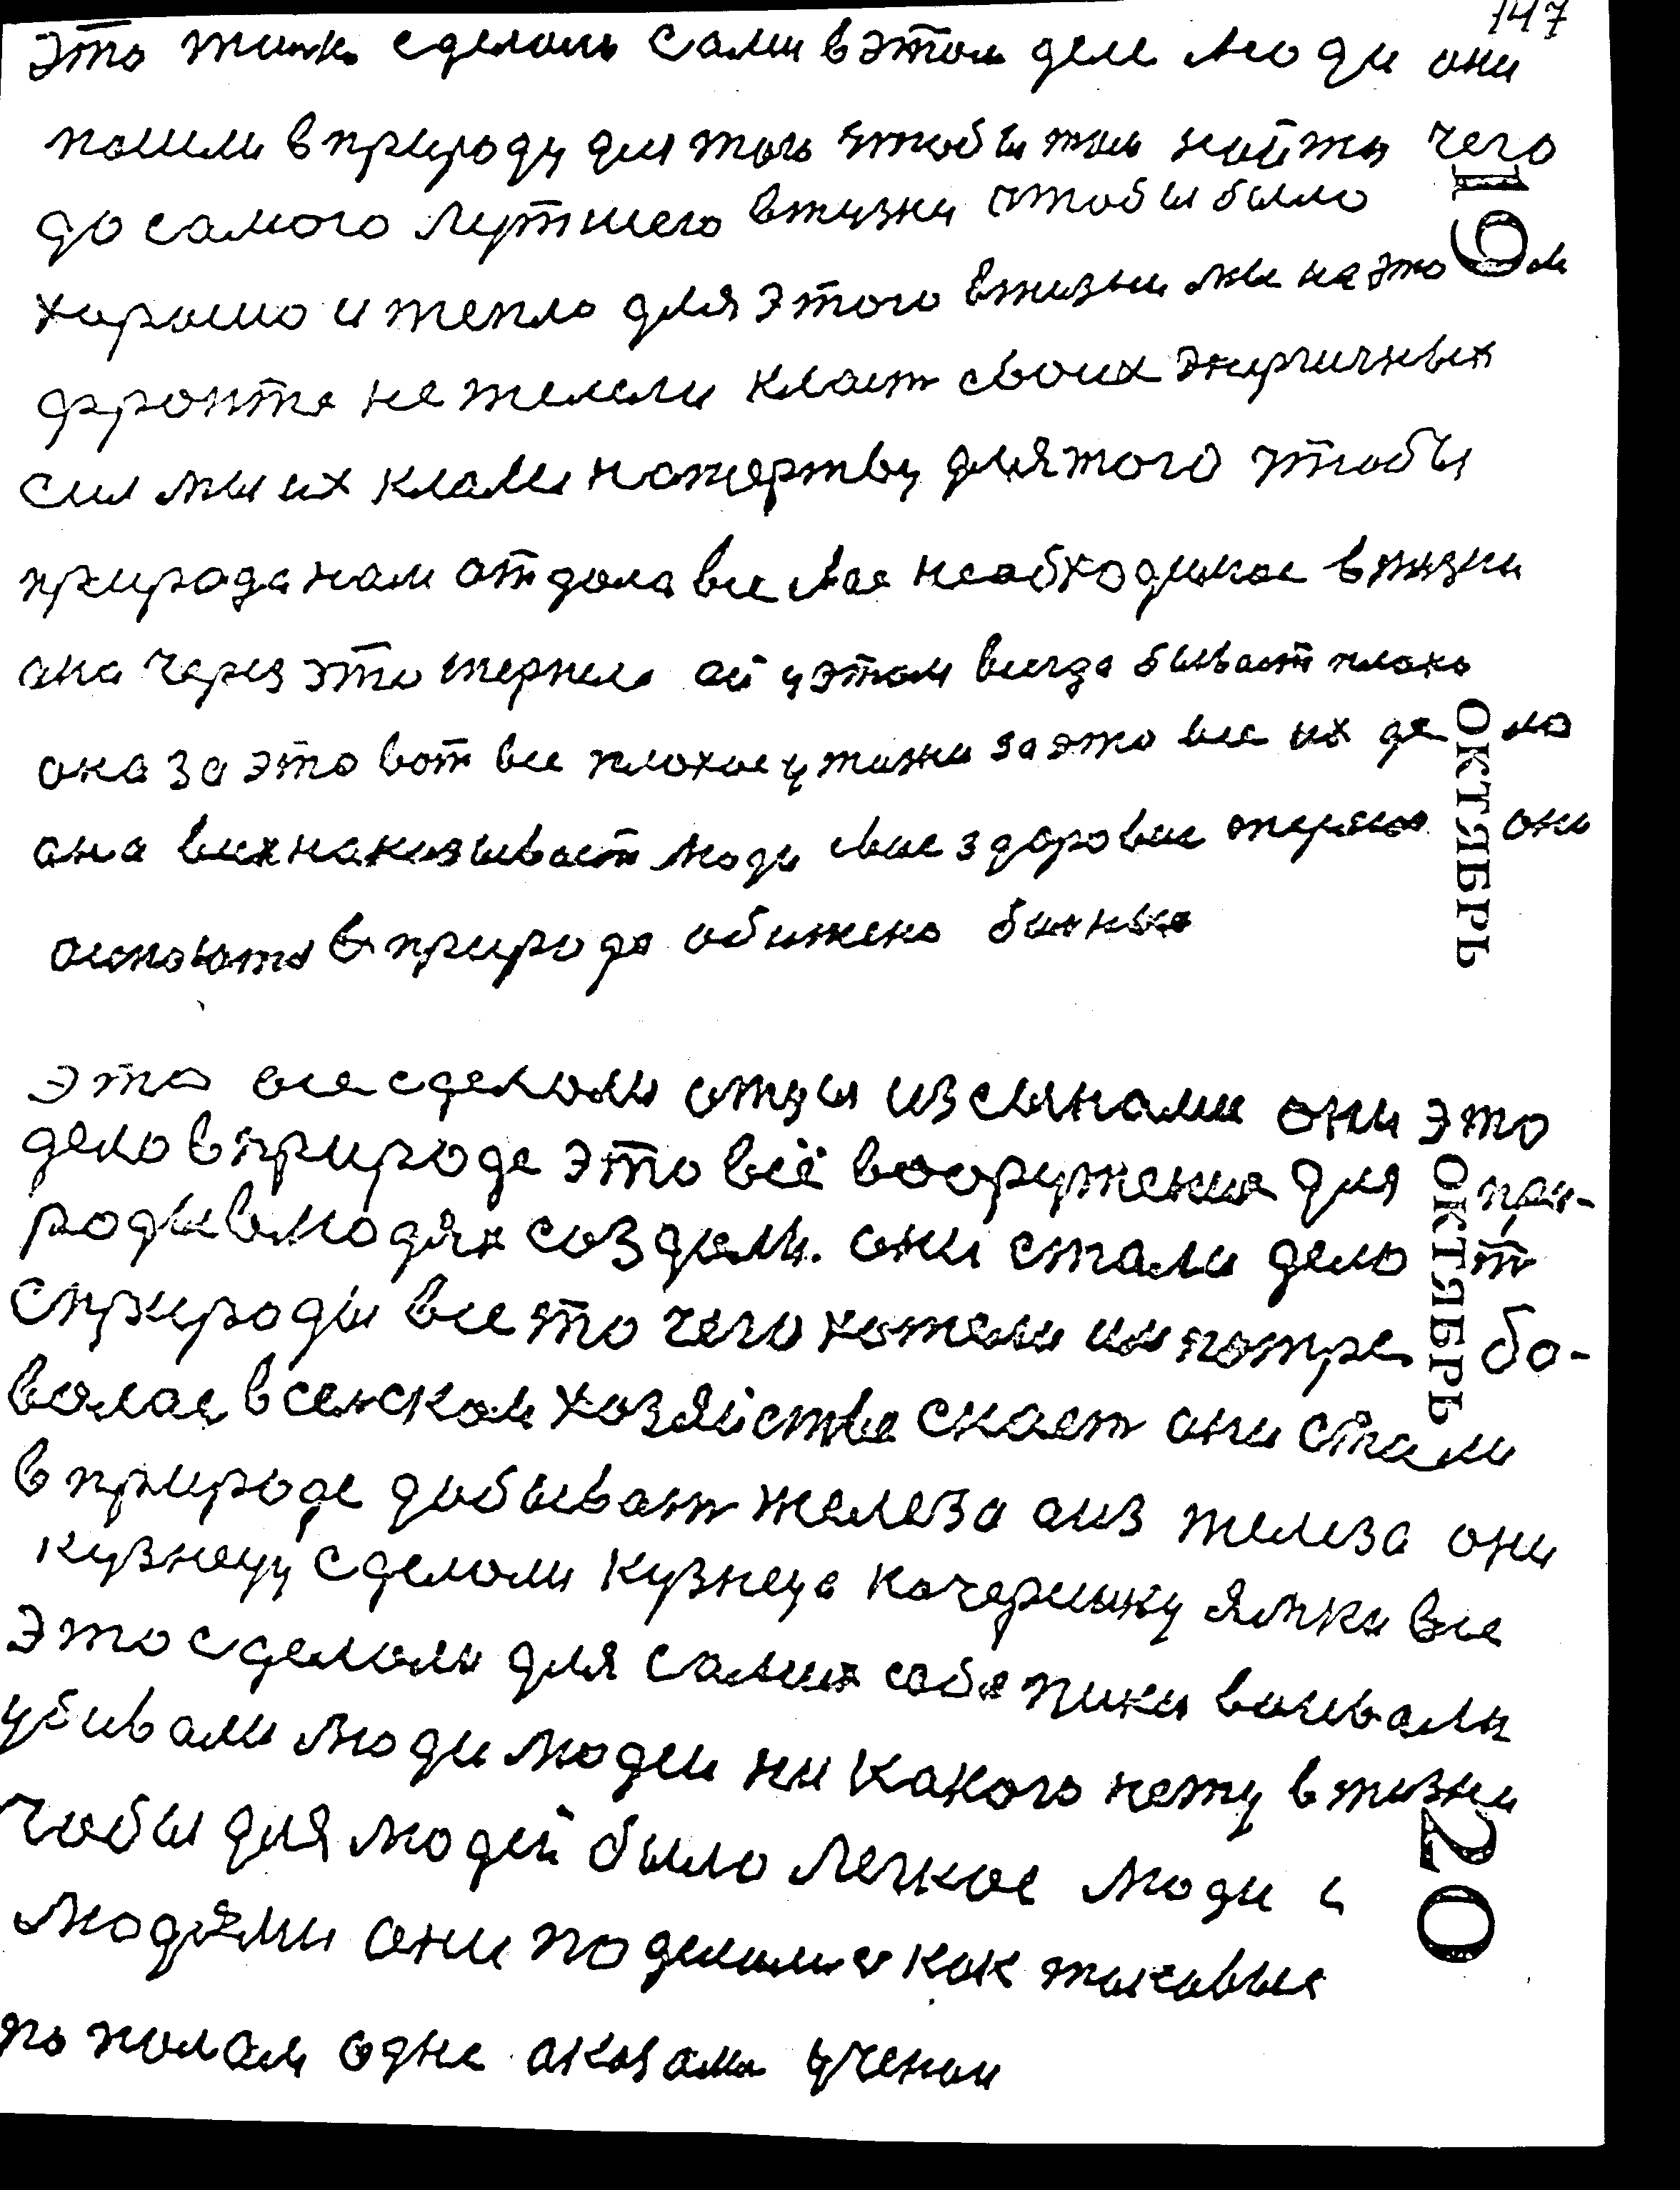 147
это так сделали сами в этом деле люди они
пошли в природу для того чтобы там найти чего
19
до самого лутшего в жизни чтобы было
хорошо и тепло для этого в жизни мы на этом
фронте не жилели класт своих энергичных
сил мы их клали на жертву для того чтобы
природа нам отдала все свое необходимое в жизни
она через это терпела ей у этом всегда бывает плохо
ОКТЯБРЬ
она за это вот все плохие у жизни за это все их дело
она в их наказывает люди свое здоровие они
в природе обижено
это все сделали отцы из сынами они это
дело в природе это всё вооружение для при-
ОКТЯБРЬ
роды в людях создали. они стали делат
с природы все то чего хотели им потребо-
валае в сенском хозяйстве скает они стали
в природе добыват железа а из железа они
кузнецу сделали кузнеца качерышку все
это сделали для самих собе пики воивали
убивали люди людеи ни какого нету в жизни
чобы для людей было легкое люди с
20
людями они поделили как таковые
по полам одне аказали ученаи